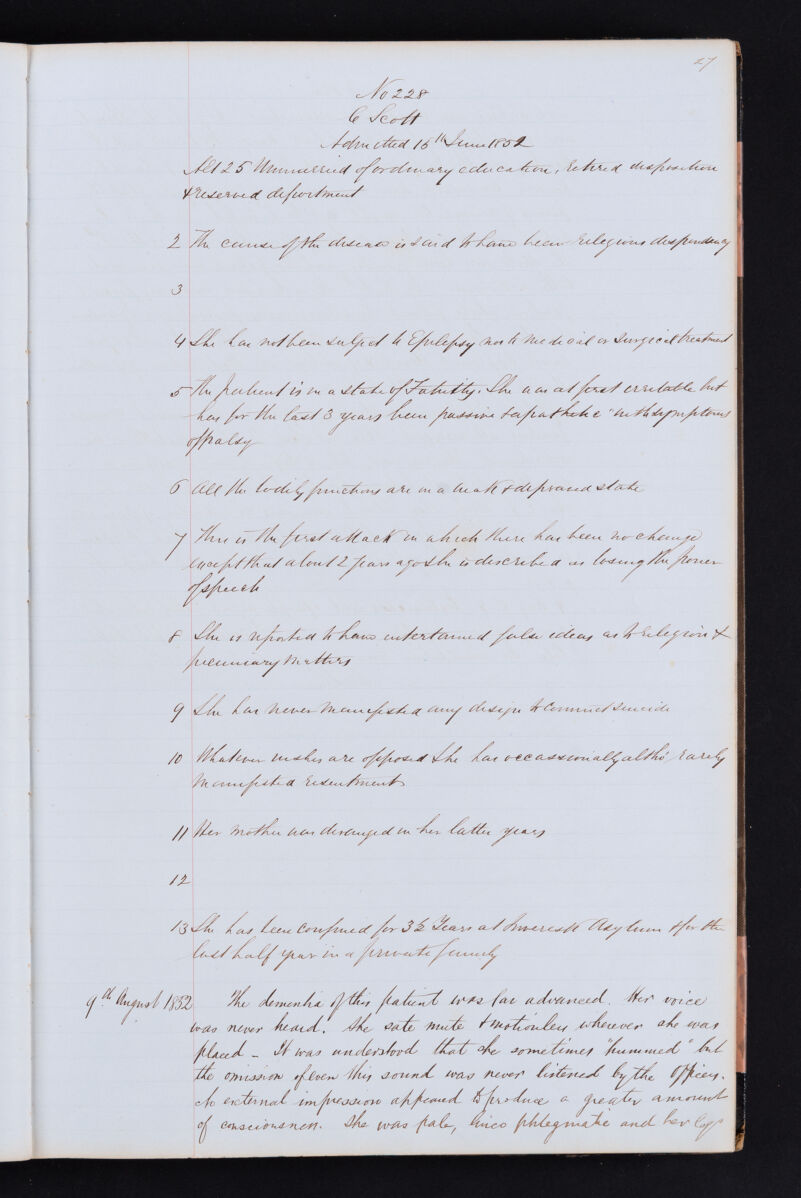 27
No 228
C Scott
Admitted 15th June 1852
Aet 25 Unmarried of ordinary education, retired disposition
& reserved deportment
2 The cause of the disease is said to have been religious despondency
3
4 She has not been subject to Epilepsy nor to medical or surgical treatment
5 The patient is in a state of Fatuity. She was at first irritable but
has for the last 3 years been passive & apathetic with symptoms
of palsy
6 All the bodily functions are in a weak & depraved state
7 This is the first attack in which there has been no change
except that about 2 years ago she is described as losing the power
of speech
8 She is reported to have entertained false ideas as to religion &
pecuniary matters
9 She has never manifested any design to commit suicide
10 Whatever wishes are opposed She has occassionally altho' rarely
manifested resentment
11 Her mother was deranged in her latter years
12
13 She has been confined for 3½ Years at Inveresk Asylum & for the
last half year in a private family
9th August 1852 The dementia of this patient was far advanced. Her voice
was never heard. She sate mute & motionless wherever she was
placed - It was understood that she sometimes "hummed" but
the omission of even this sound was never listened by the Officers.
No external impression appeared to produce a greater amount
of consciousness. She was pale, phlegmatic and her